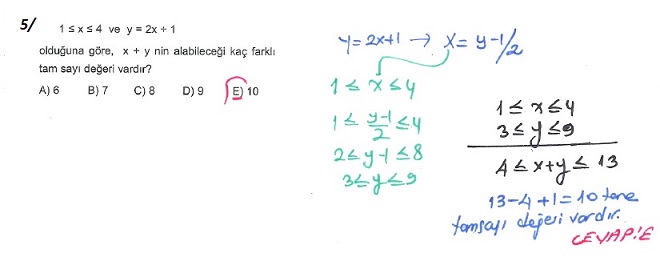 5/ 1 ≤ x ≤ 4 ve y = 2x + 1
olduğuna göre, x + y nin alabileceği kaç farklı
tam sayı değeri vardır?
A) 6 B) 7 C) 8 D) 9 E) 10
y = 2x+1 → x = y-1/2
1 ≤ x ≤ 4
1 ≤ y-1/2 ≤ 4
2 ≤ y-1 ≤ 8
3 ≤ y ≤ 9
1 ≤ x ≤ 4
3 ≤ y ≤ 9
4 ≤ x+y ≤ 13
13-4+1=10 tane
tamsayı değeri vardır.
CEVAP:E